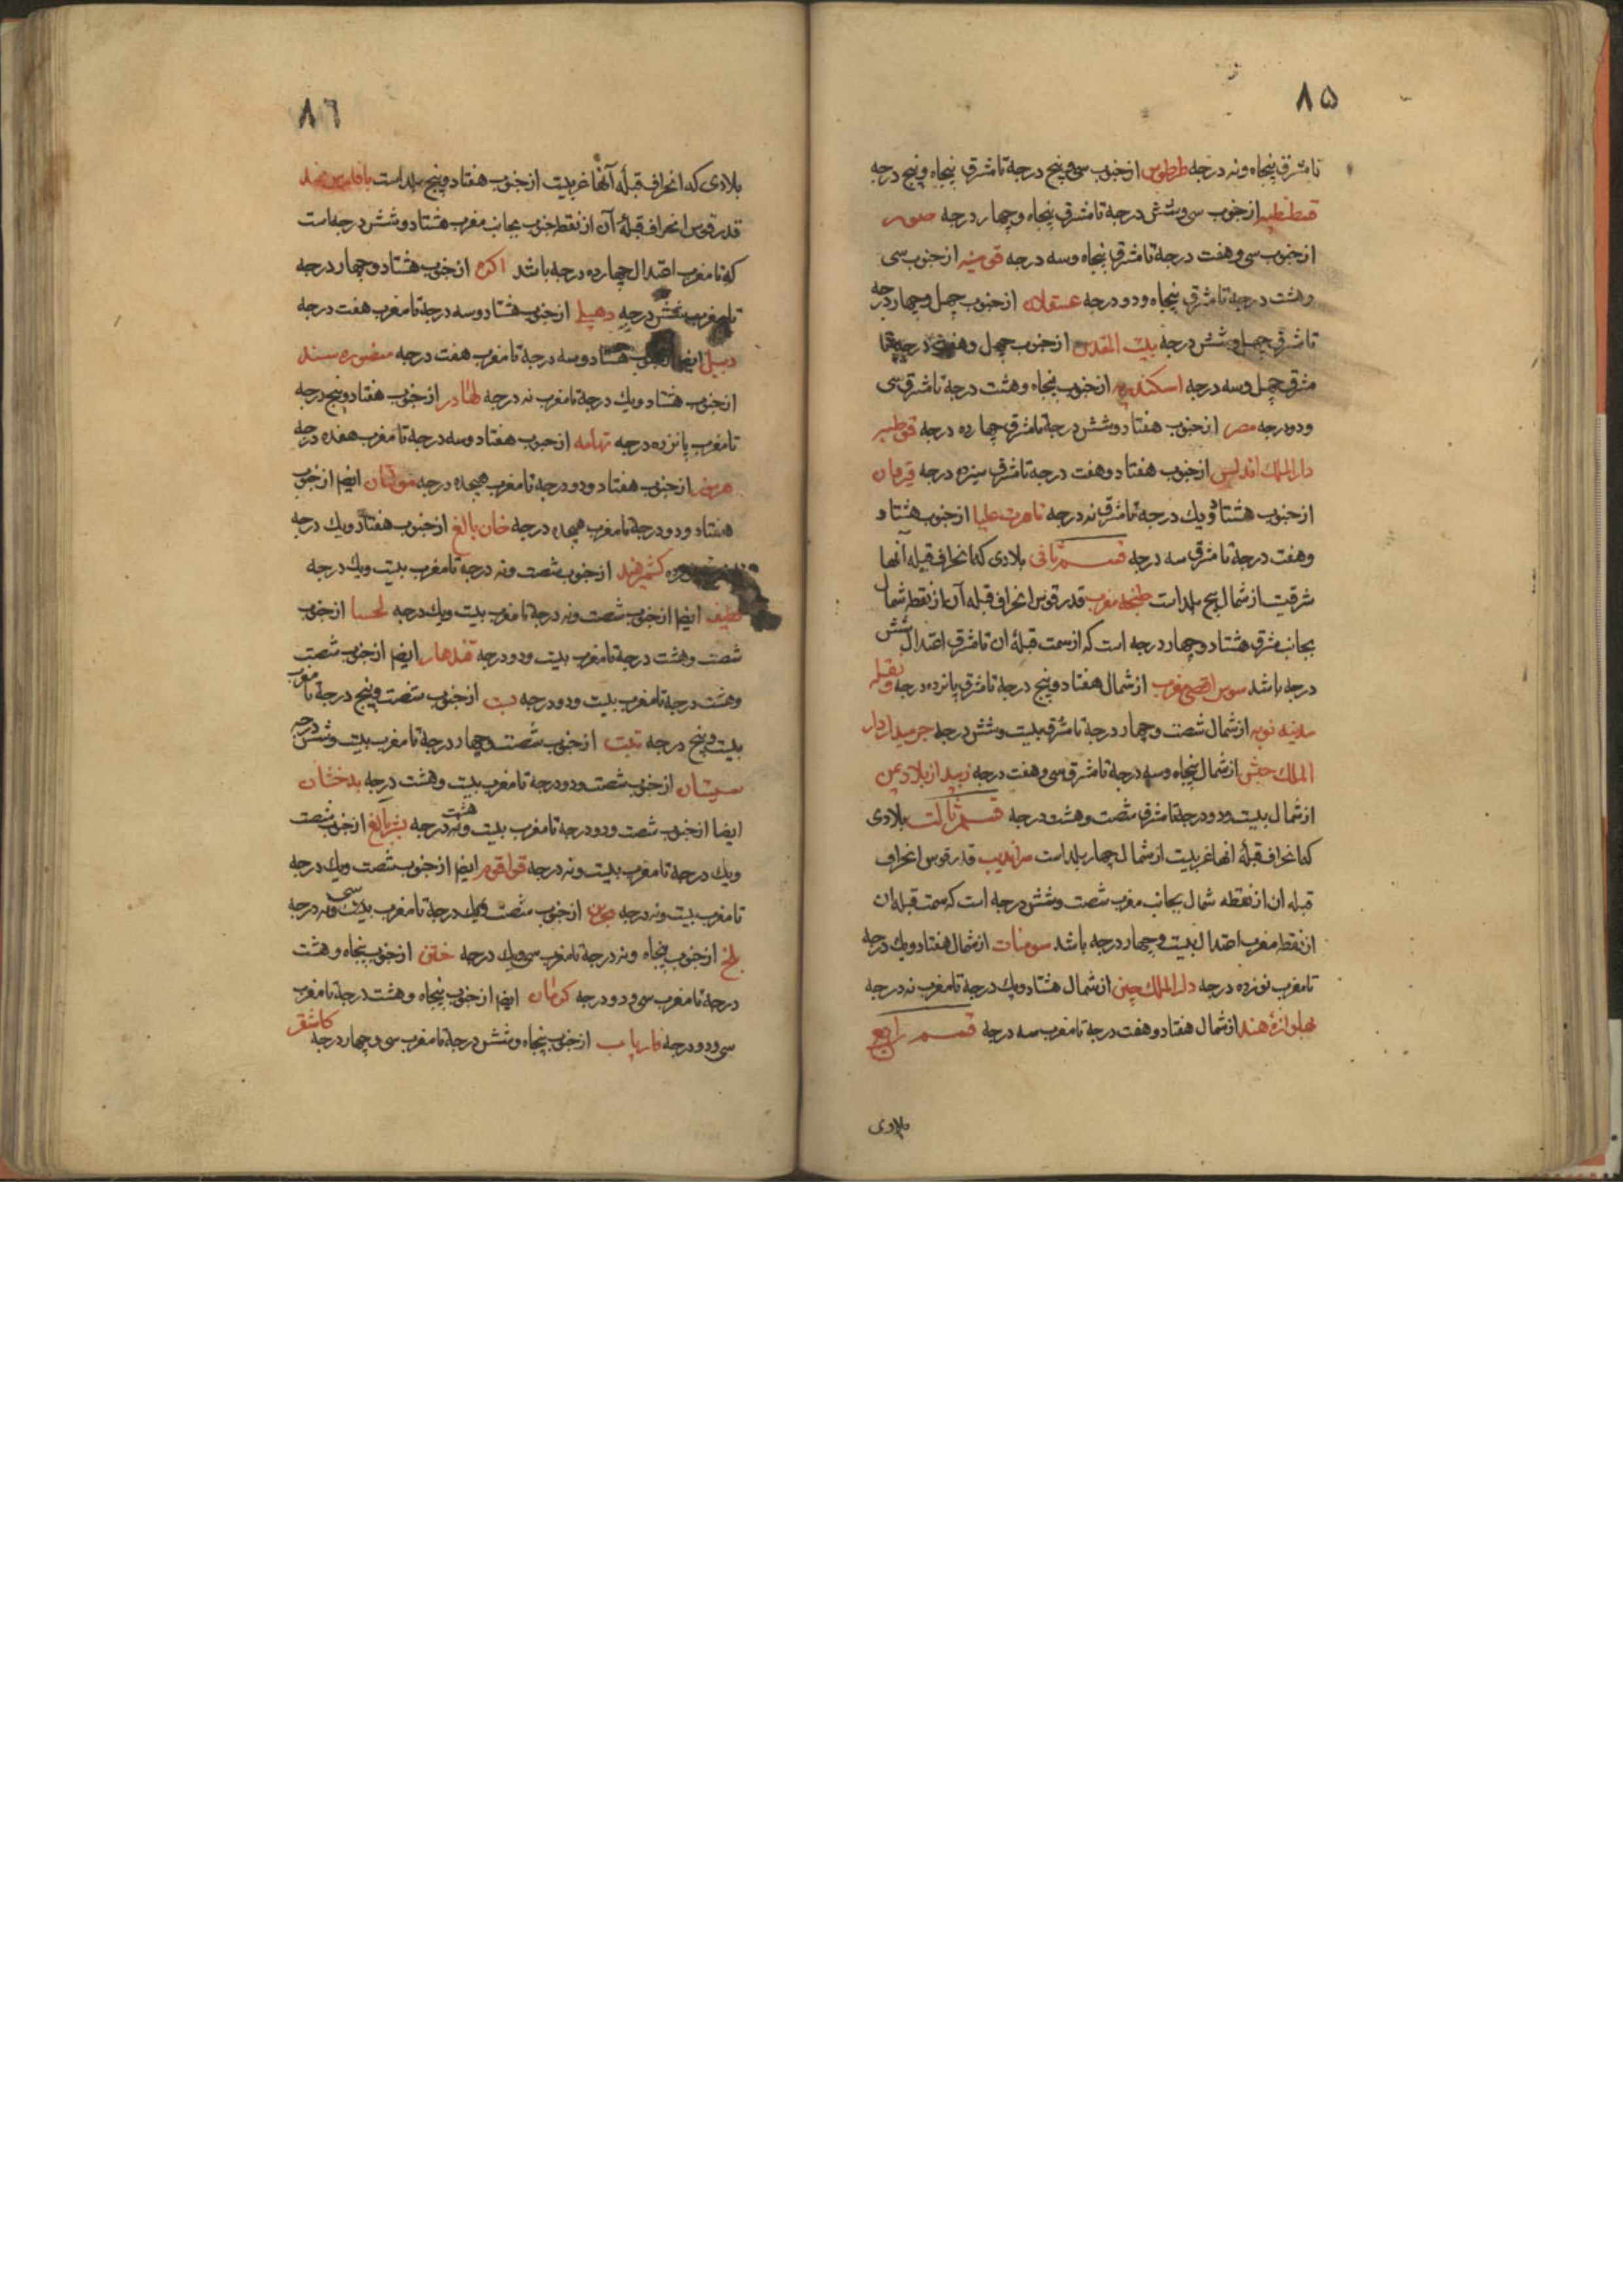 ۸۵
تا مشرق پنجاه و نه درجه طرطوس از جنوب سی و پنج درجه تا مشرق پنجاه و پنج درجه
قسطنطنیه از جنوب سی و شش درجه تا مشرق پنجاه و چهار درجه صور
از جنوب سی و هفت درجه تا مشرق پنجاه و سه درجه قونیه از جنوب سی
و هشت درجه تا مشرق پنجاه و دو درجه عسقلان از جنوب چهل و چهار درجه
تا مشرق چهل و شش درجه بیت المقدس از جنوب چهل و هفت درجه تا
مشرق چهل و سه درجه اسکندریه از جنوب پنجاه و هشت درجه تا مشرق سی
و دو درجه مصر از جنوب هفتاد و شش درجه تا مشرق چهارده درجه قرطبه
دار الملک اندلس از جنوب هفتاد و هفت درجه تا مشرق سیزده درجه قیروان
از جنوب هشتاد و یک درجه تا مشرق نه درجه تاهرت علیا از جنوب هشتاد
و هفت درجه تا مشرق سه درجه قسم ثانی بلادی که انحراف قبله آنها
شرقیست از شمال پنج بلد است طنجه مغرب قدر قوس انحراف قبله آن از نقطه شمال
بجانب مشرق هشتاد و چهار درجه است که از سمت قبله ان تا مشرق اعتدال شش
درجه باشد سوس اقصی مغرب از شمال هفتاد و پنج درجه تا مشرق پانزده درجه
مدینه نوبه از شمال شصت و چهار درجه تا مشرق بیست و شش درجه جرمی دار
الملک حبش از شمال پنجاه و سه درجه تا مشرق سی و هفت درجه زبید از بلاد یمن
از شمال بیست و دو درجه تا مشرق شصت و هشت درجه قسم ثالث بلادی
که انحراف قبله انها غربیست از شمال چهار بلد است سراندیب قدر قوس انحراف
قبله ان از نقطه شمال بجانب مغرب شصت و شش درجه است که سمت قبله ان
از نقطه مغرب اعتدال بیست و چهار درجه باشد سومنات از شمال هفتاد و یک درجه
تا مغرب نوزده درجه دار الملک چین از شمال هشتاد و یک درجه تا مغرب نه درجه
نهلوازه هند از شمال هفتاد و هفت درجه تا مغرب سه درجه قسم رابع
بلادی
۸۶
بلادی که انحراف قبله آنها غربیست از جنوب هفتاد و پنج بلد است
قدر قوس انحراف قبله آن از نقطه جنوب بجانب مغرب هشتاد و شش درجه است
که تا مغرب اعتدال چهارده درجه باشد اکره از جنوب هشتاد و چهار درجه
تا مغرب شش درجه دهلی از جنوب هشتاد و سه درجه تا مغرب هفت درجه
دیبل ایضا از جنوب هشتاد و سه درجه تا مغرب هفت درجه منصوره سند
از جنوب هشتاد و یک درجه تا مغرب نه درجه لهادر از جنوب هفتاد و پنج درجه
تا مغرب پانزده درجه تهامه از جنوب هفتاد و سه درجه تا مغرب هفده درجه
هرمز از جنوب هفتاد و دو درجه تا مغرب هیجده درجه مولتان ایضا از جنوب
هفتاد و دو درجه تا مغرب هیجده درجه خان بالغ از جنوب هفتاد و یک درجه
کشمیر هند از جنوب شصت و نه درجه تا مغرب بیست و یک درجه
قطیف ایضا از جنوب شصت و نه درجه تا مغرب بیست و یک درجه لحسا از جنوب
شصت و هشت درجه تا مغرب بیست و دو درجه قندهار ایضا از جنوب شصت
و هشت درجه تا مغرب بیست و دو درجه بست از جنوب شصت و پنج درجه تا مغرب
بیست و پنج درجه تبت از جنوب شصت و چهار درجه تا مغرب بیست و شش درجه
سیستان از جنوب شصت و دو درجه تا مغرب بیست و هشت درجه بدخشان
ایضا از جنوب شصت و دو درجه تا مغرب بیست و هشت درجه بیش بالغ از جنوب شصت
و یک درجه تا مغرب بیست و نه درجه قراقرم ایضا از جنوب شصت و یک درجه
تا مغرب بیست و نه درجه از جنوب شصت و یک درجه تا مغرب بیست و نه درجه
بلخ از جنوب پنجاه و نه درجه تا مغرب سی و یک درجه ختن از جنوب پنجاه و هشت
درجه تا مغرب سی و دو درجه کرمان ایضا از جنوب پنجاه و هشت درجه تا مغرب
سی و دو درجه فاریاب از جنوب پنجاه و شش درجه تا مغرب سی و چهار درجه کاشغر